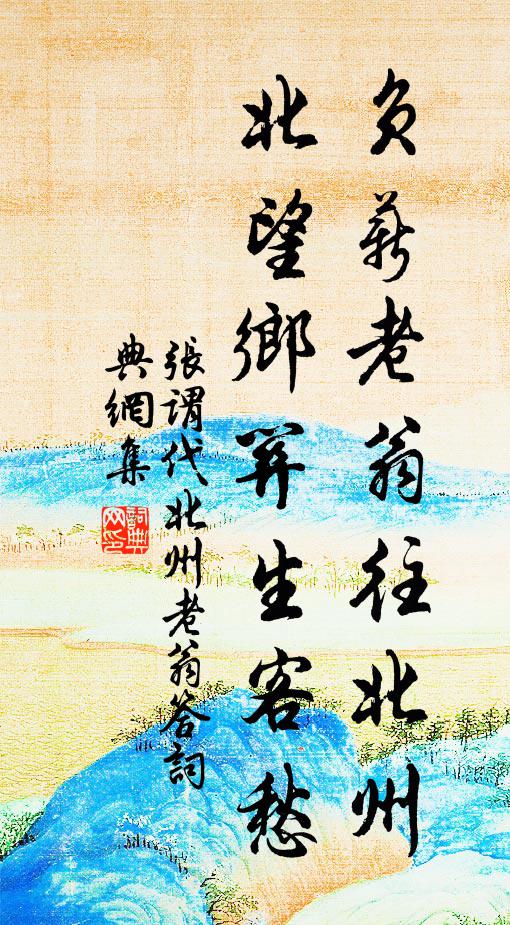 負薪老翁往北州
北望鄉關生客愁
張謂代北州老翁答詞
典網集
詞典
网印